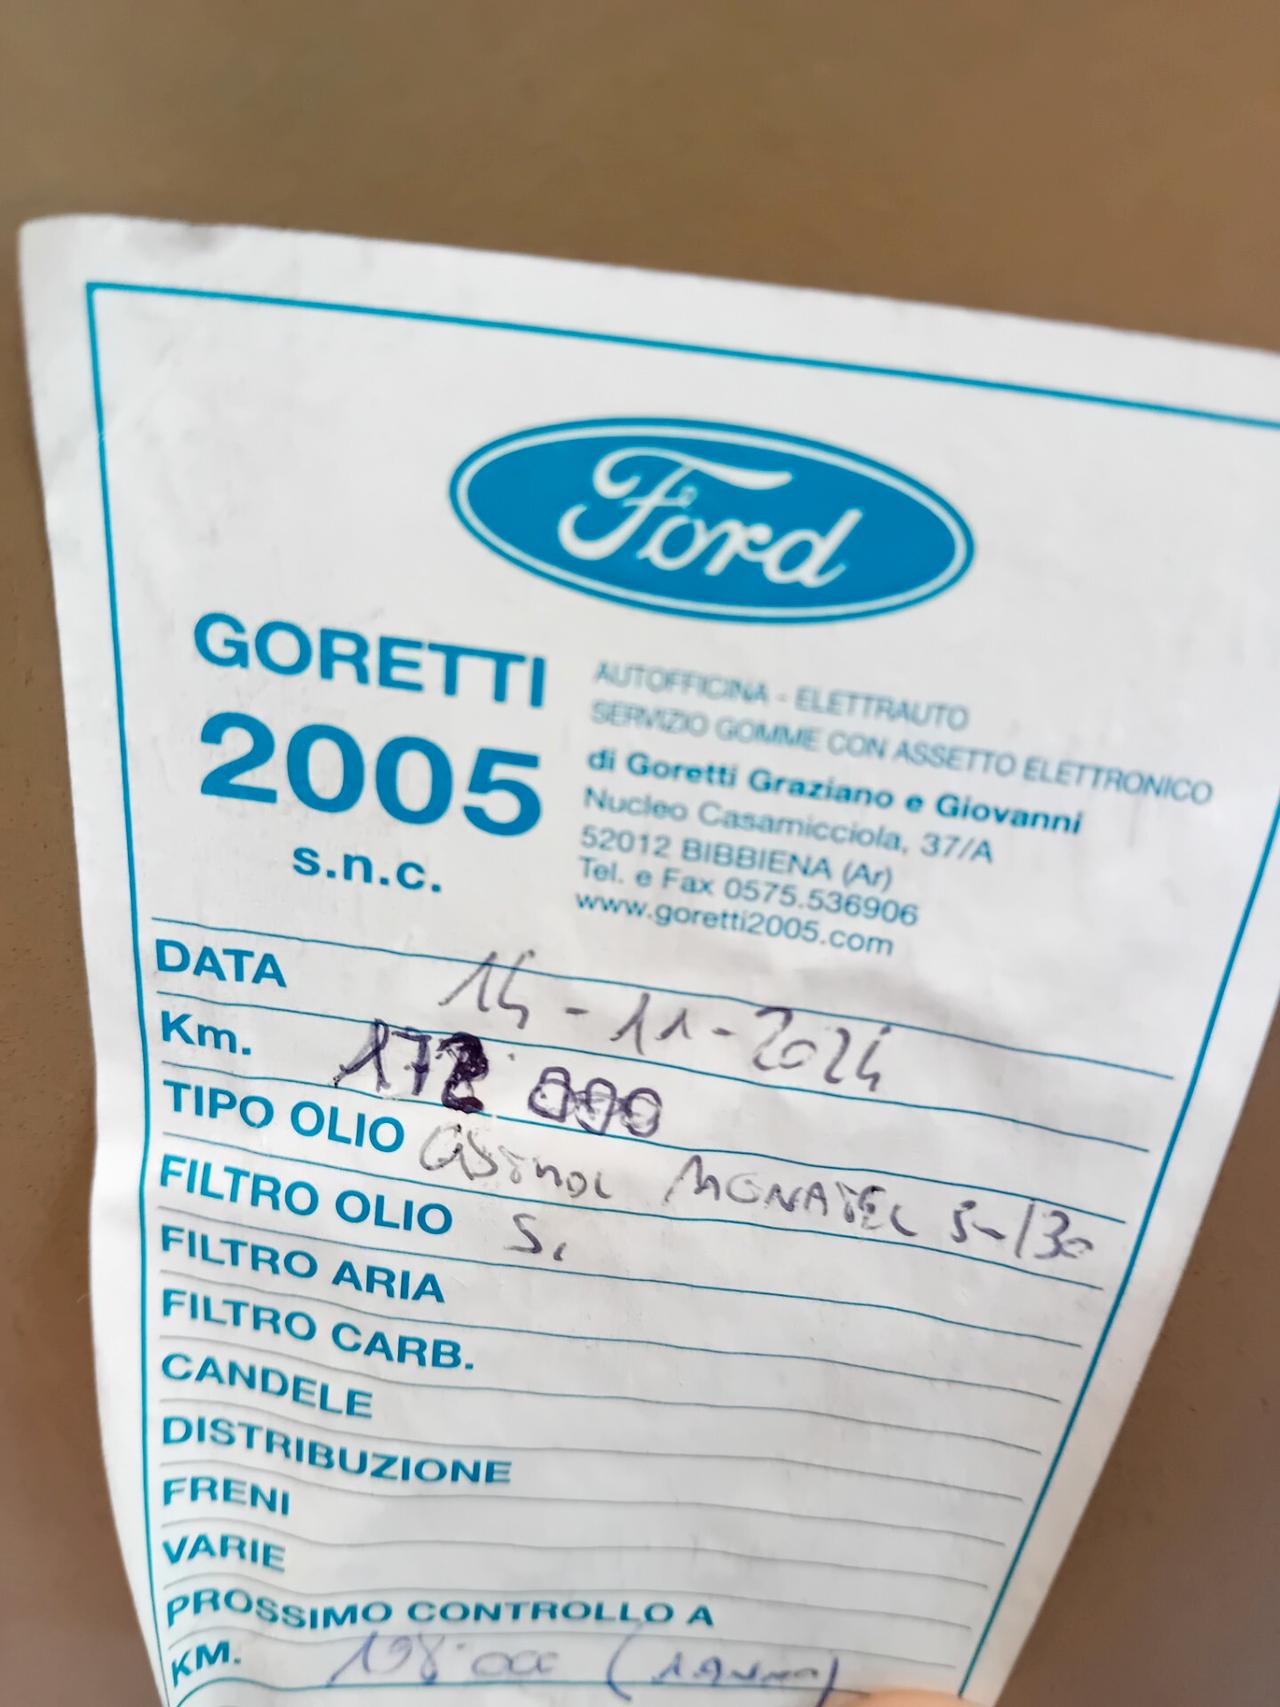 Ford
GORETTI
2005
s.n.c.
AUTOFFICINA - ELETTRAUTO
SERVIZIO GOMME CON ASSETTO ELETTRONICO
di Goretti Graziano e Giovanni
Nucleo Casamicciola, 37/A
52012 BIBBIENA (Ar)
Tel. e Fax 0575.536906
www.goretti2005.com
DATA 14-11-2024
Km. 172
TIPO OLIO 5-/30
FILTRO OLIO Si
FILTRO ARIA
FILTRO CARB.
CANDELE
DISTRIBUZIONE
FRENI
VARIE
PROSSIMO CONTROLLO A
KM.